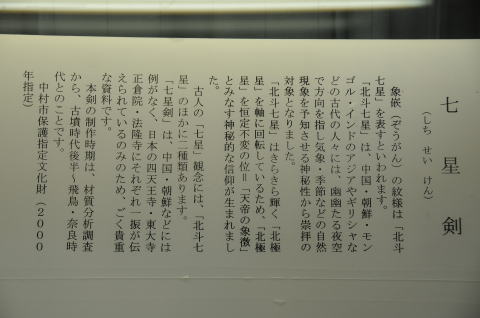 七星剣
（しち せい けん）
象嵌（ぞうがん）の紋様は「北斗
七星」を表すといわれます。
「北斗七星」は、中国・朝鮮・モン
ゴル・インドのアジアやギリシャな
どの古代の人々には、幽幽たる夜空
で方向を指し気象・季節などの自然
現象を予知させる神秘性から崇拝の
対象となりました。
「北斗七星」はきらきら輝く「北極
星」を軸に回転しているため、「北極
星」を恒定不変の位＝「天帝の象徴」
とみなす神秘的な信仰が生まれまし
た。
古人の「七星」観念には、「北斗七
星」のほかに二種類あります。
「七星剣」は、中国・朝鮮などには
例がなく、日本の四天王寺・東大寺
正倉院・法隆寺にそれぞれ一振が伝
えられているのみのため、ごく貴重
な資料です。
本剣の制作時期は、材質分析調査
から、古墳時代後半〜飛鳥・奈良時
代とのことです。
中村市保護指定文化財（２０００
年指定）